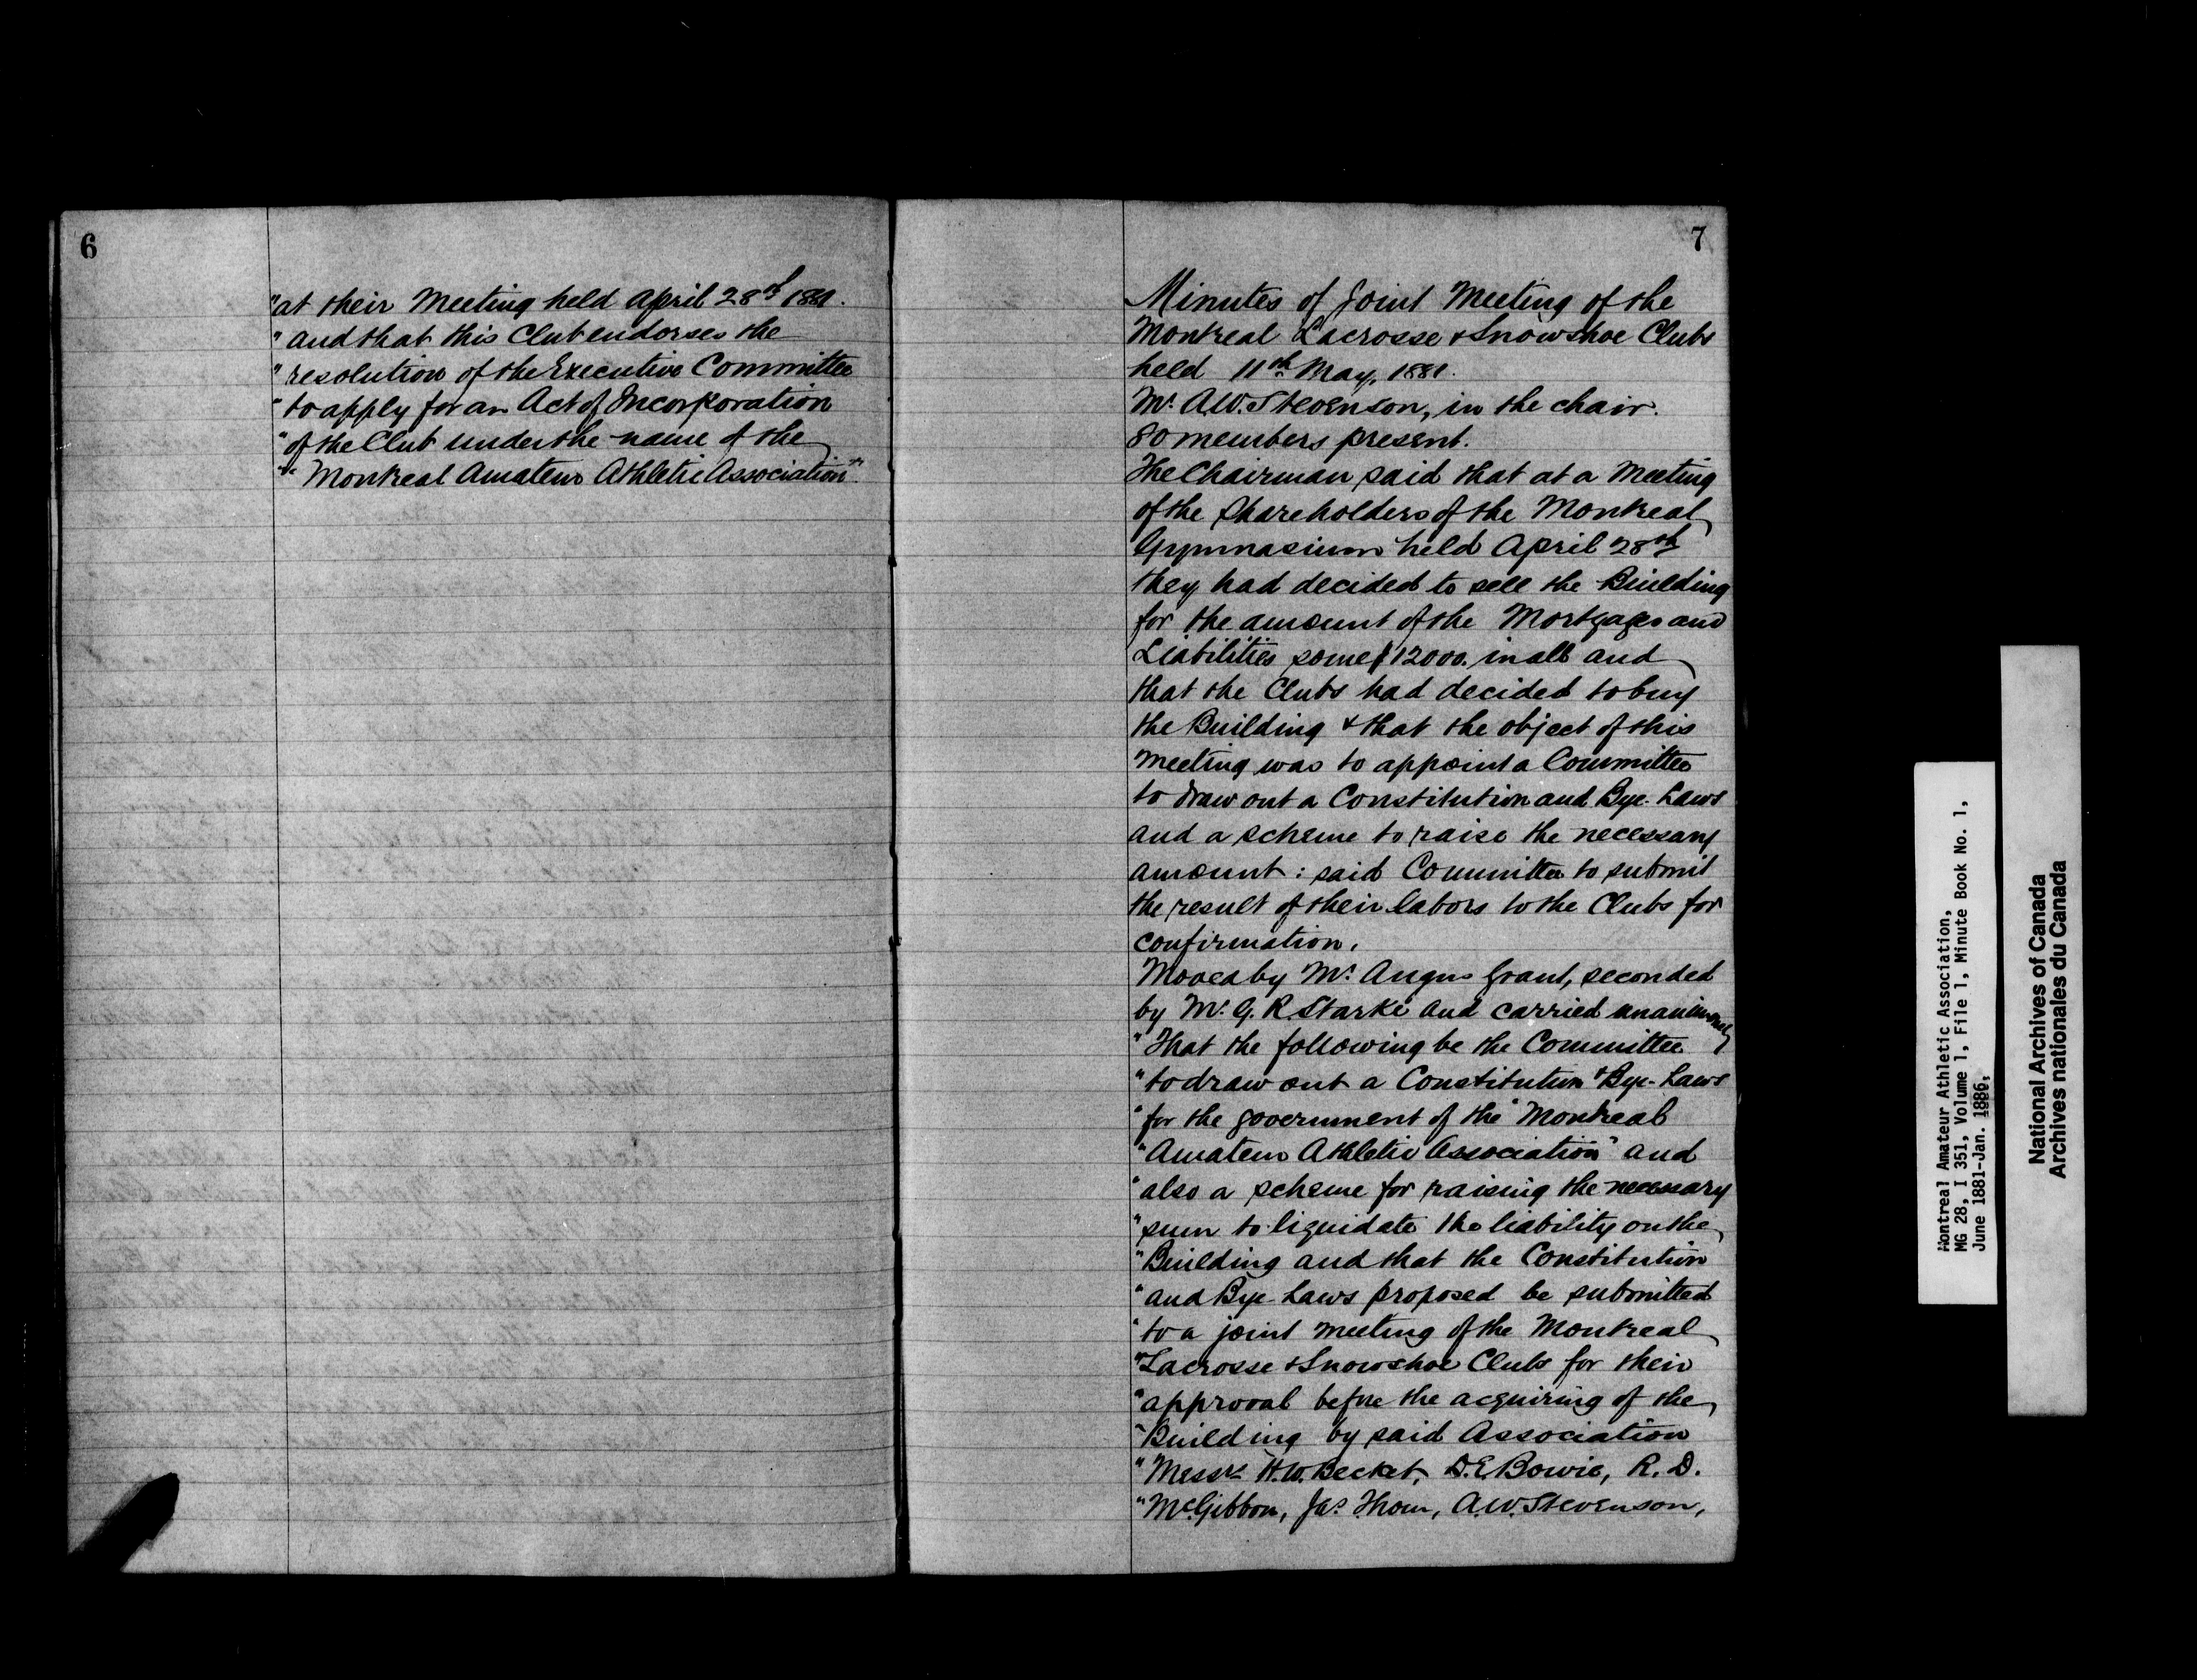 6
"at their Meeting held April 28th 1881.
" and that this Club endorses the
" resolution of the Executive Committee
" to apply for an Act of Incorporation
" of the Club under the name of the
"" Montreal Amateur Athletic Association".
7
Minutes of Joint Meeting of the
Montreal Lacrosse & Snowshoe Clubs
held 11th May, 1881.
Mr. A.W. Stevenson, in the chair.
80 members present.
The Chairman said that at a Meeting
of the Shareholders of the Montreal
Gymnasium held April 28th
they had decided to sell the Building
for the amount of the Mortgages and
Liabilities some $12000. in all and
that the Clubs had decided to buy
the Building & that the object of this
meeting was to appoint a Committee
to draw out a Constitution and Bye-Laws
and a scheme to raise the necessary
amount : said Committee to submit
the result of their labors to the Clubs for
confirmation.
Moved by Mr. Angus Grant, seconded
by Mr. G. R. Starke and carried unanimously
"That the following be the Committee
"to draw out a Constitution & Bye-Laws
"for the government of the "Montreal
"Amateur Athletic Association" and
"also a scheme for raising the necessary
"sum to liquidate the liability on the
"Building and that the Constitution
"and Bye-Laws proposed be submitted
"to a joint meeting of the Montreal
"Lacrosse & Snowshoe Clubs for their
"approval before the acquiring of the
"Building by said Association
"Messrs H.W. Becket, D.E. Bowie, R. D.
"McGibbon, Jas. Thom, A.W. Stevenson,
Montreal Amateur Athletic Association,
MG 28, I 351, Volume 1, File 1, Minute Book No. 1,
June 1881-Jan. 1886,
National Archives of Canada
Archives nationales du Canada